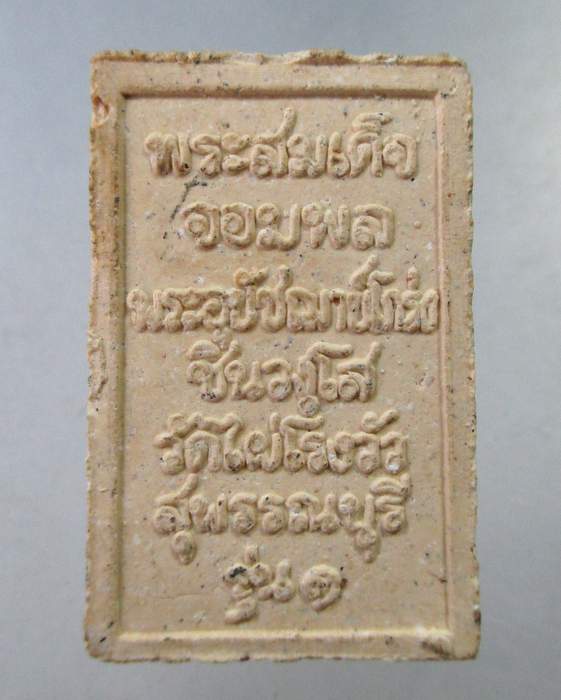 พระสมเด็จ
จอมพล
พระอุปัชฌาย์โหน่ง
ชินวงฺโส
วัดไผ่โรงวัว
สุพรรณบุรี
รุ่น๑